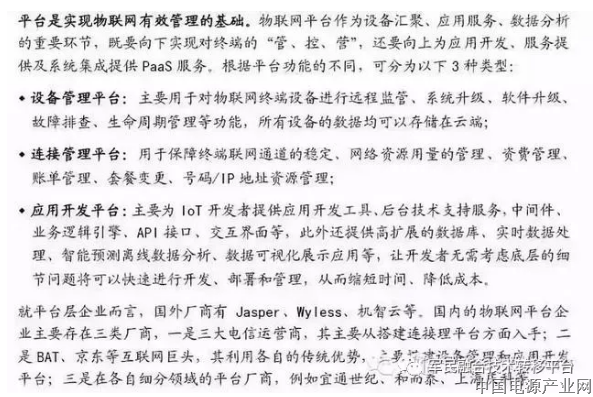 平台是实现物联网有效管理的基础。物联网平台作为设备汇聚、应用服务、数据分析
的重要环节，既要向下实现对终端的“管、控、营”，还要向上为应用开发、服务提
供及系统集成提供 PaaS 服务。根据平台功能的不同，可分为以下 3 种类型：
• 设备管理平台：主要用于对物联网终端设备进行远程监管、系统升级、软件升级、
故障排查、生命周期管理等功能，所有设备的数据均可以存储在云端；
• 连接管理平台：用于保障终端联网通道的稳定、网络资源用量的管理、资费管理、
账单管理、套餐变更、号码/IP 地址资源管理；
• 应用开发平台：主要为 IoT 开发者提供应用开发工具、后台技术支持服务，中间件、
业务逻辑引擎、API 接口、交互界面等，此外还提供高扩展的数据库、实时数据处
理、智能预测离线数据分析、数据可视化展示应用等，让开发者无需考虑底层的细
节问题将可以快速进行开发、部署和管理，从而缩短时间、降低成本。
就平台层企业而言，国外厂商有 Jasper、Wyless、机智云等。国内的物联网平台企
业主要存在三类厂商，一是三大电信运营商，其主要从搭建连接理平台方面入手；二
是 BAT、京东等互联网巨头，其利用各自的传统优势，主要搭建设备管理和应用开发
平台；三是在各自细分领域的平台厂商，例如宜通世纪、和而泰、上海
军民融合技术转移平台
中国电源产业网